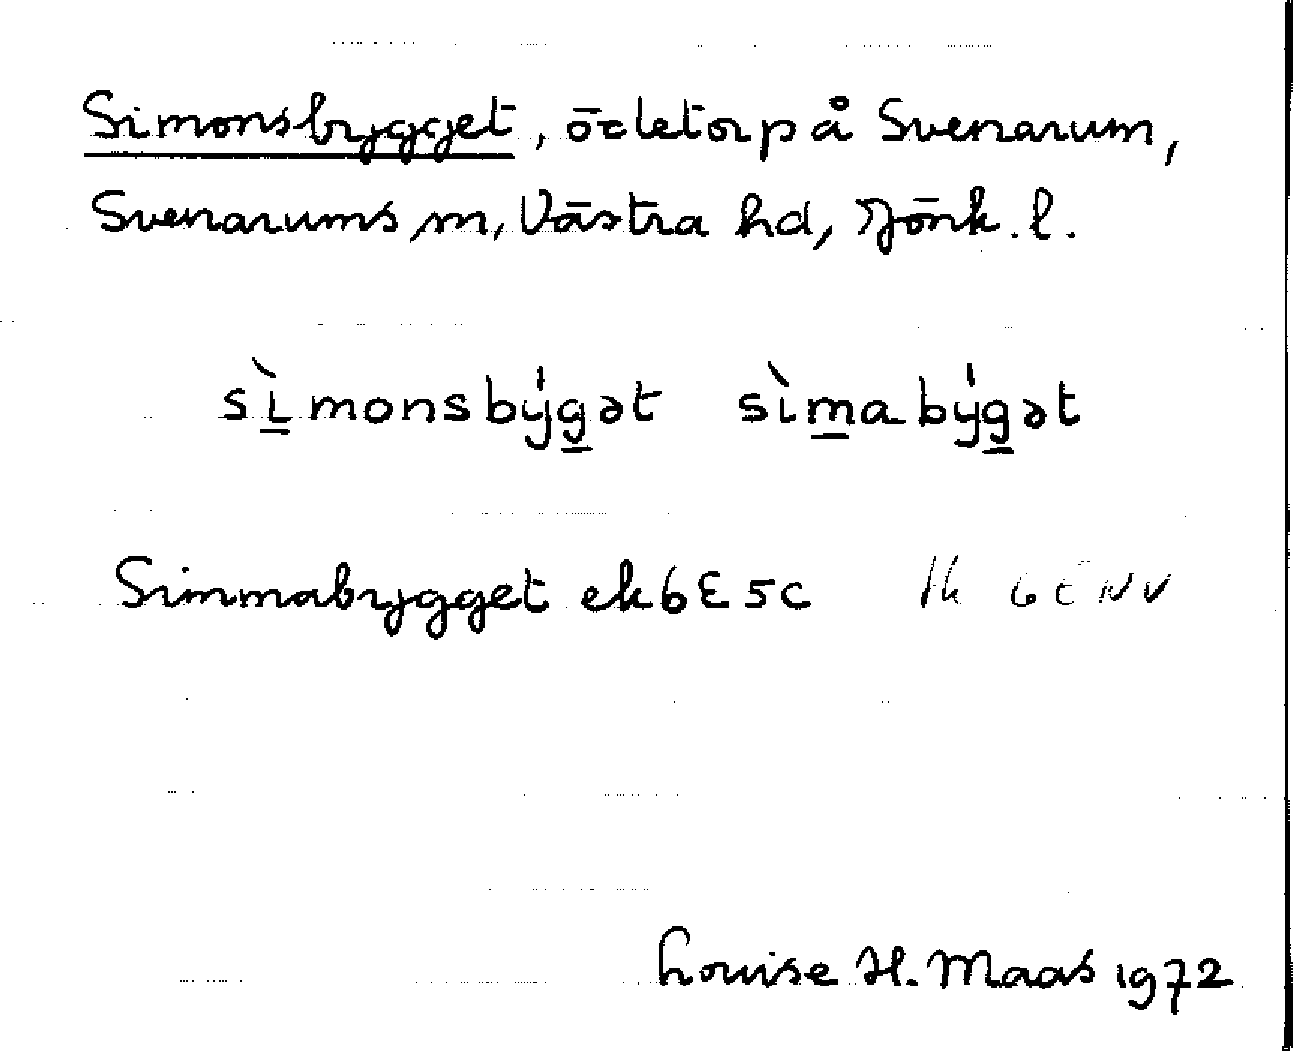 Simonsbygget, ödetorp å Svenarum,
Svenarums sn, Västra hd, Jönk. l.
sı̀monsbýgət sìmabýgət
Simmabygget ek 6E5c hk 6E NV
Louise H. Maas 1972